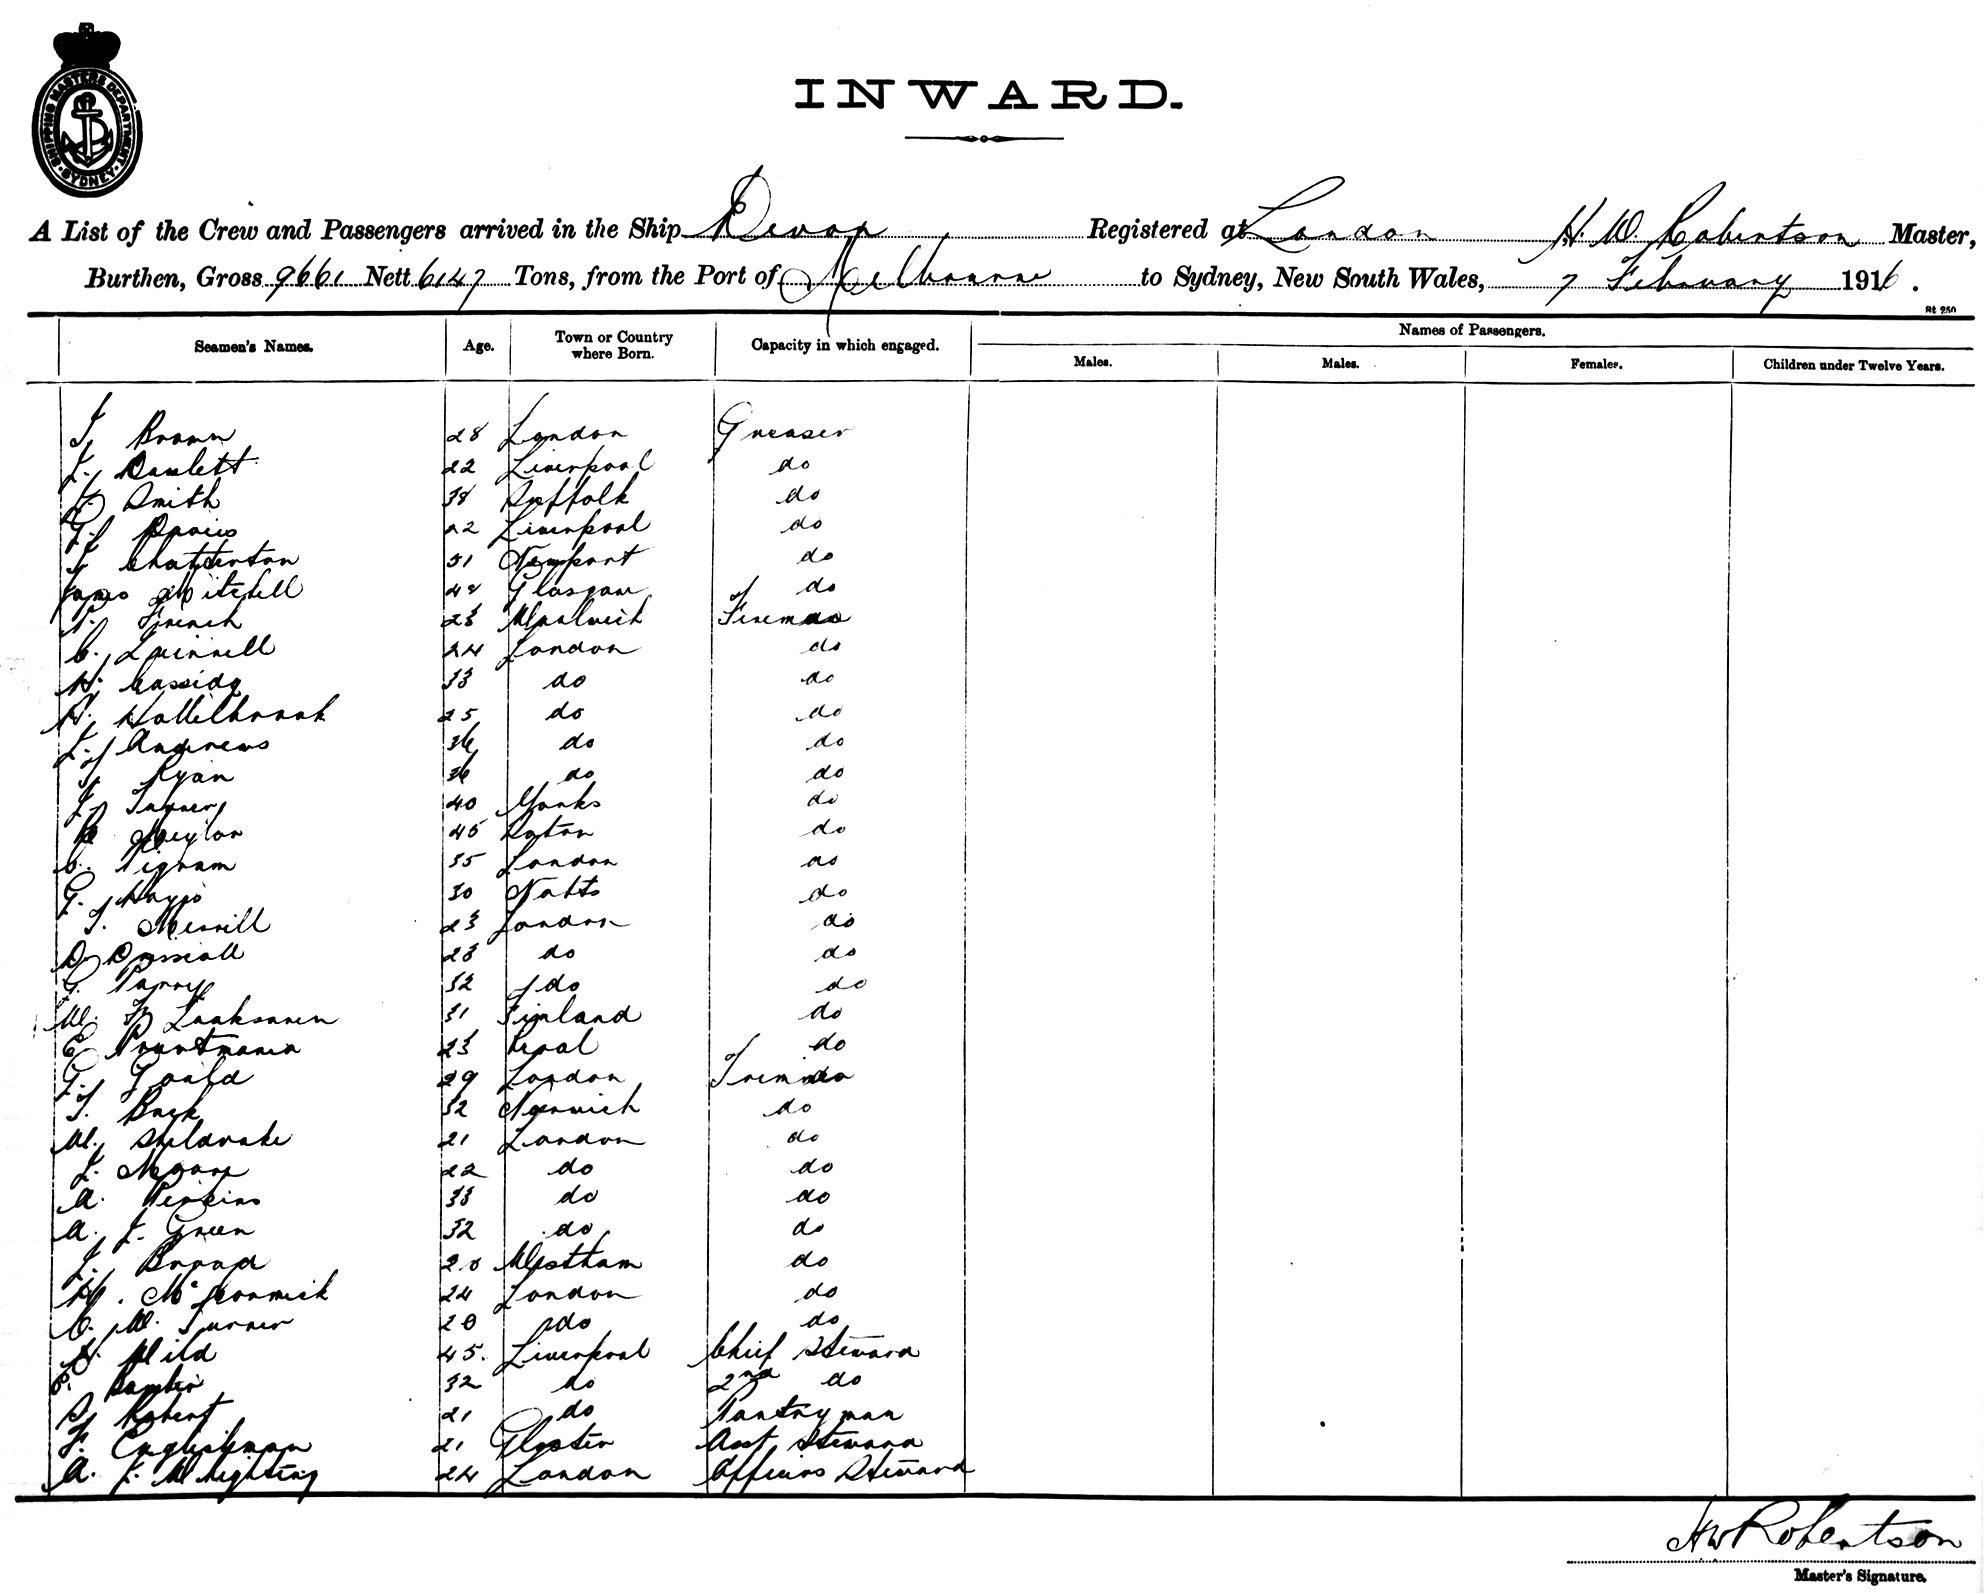 SHIPPING MASTERS DEPARTMENT
SYDNEY
INWARD.
A List of the Crew and Passengers arrived in the Ship Devon Registered at London H. W. Robertson Master,
Burthen, Gross 9661 Nett 6147 Tons, from the Port of Melbourne to Sydney, New South Wales, 7 February 1916.
St 250
Names of Passengers.
Seamen's Names. Age. Town or Country where Born. Capacity in which engaged. Males. Males. Females. Children under Twelve Years.
Brown 28 London Greaser
22 Liverpool do
Smith 38 Suffolk do
Davies 22 Liverpool do
Chatterton 31 Newport do
James Mitchell Glasgow do
French 23 Woolwich Fireman
C. Quinnell 24 London do
H. Cassidy 33 do do
H. 25 do do
J. Andrews 36 do do
Ryan 36 do do
40 Yorks do
45 do
C. Pigram 35 London do
G. Hayes 30 Notts do
T. Merrill 23 London do
23 do do
G. Parry 32 do do
W. Laaksonen 31 Finland do
E. 23 Reval do
G. Gould 29 London Trimmer
T. Buck 32 Norwich do
W. Sheldrake 21 London do
J. 22 do do
A. Perkins 33 do do
A. J. Green 32 do do
J. 20 Westham do
H. McCormick 24 London do
C. W. Turner 20 do do
Wild 45. Liverpool Chief Steward
32 do 2nd do
Robert 21 do Pantryman
F. Englishman 21 Gloster Asst Steward
A. J. Whighting 24 London Officers Steward
HW Robertson
Master's Signature.